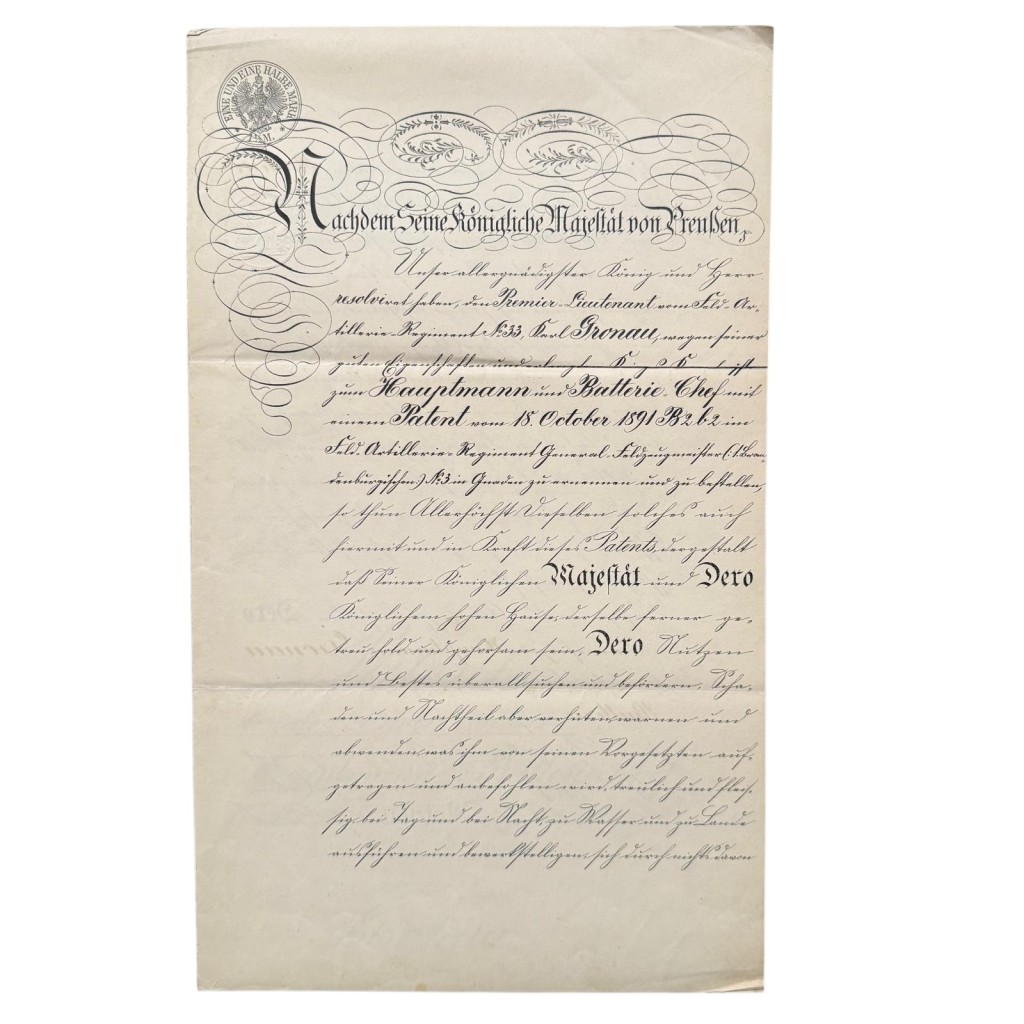 EINE UND EINE HALBE MARK
Nachdem Seine Königliche Majestät von Preußen,
Unser allergnädigster König und Herr
resolviret haben, den Premier-Lieutenant vom Feld-Ar-
tillerie-Regiment No. 33, Karl Gronau, wegen seiner
guten Eigenschaften und
zum Hauptmann und Batterie-Chef mit
einem Patent vom 18. October 1891 B2b2 im
Feld-Artillerie-Regiment General-Feldzeugmeister (:1. Bran-
denburgischen:) No. 3 in Gnaden zu ernennen und zu bestellen,
so thun Allerhöchst Dieselben solches auch
hiermit und in Kraft dieses Patents, dergestalt
daß Seiner Königlichen Majestät und Dero
Königlichem hohen Hause, derselbe ferner ge-
treu hold und gehorsam sein, Dero Nutzen
und Bestes überall suchen und befördern, Scha-
den und Nachtheil aber verhüten, warnen und
abwenden, was ihm von seinen Vorgesetzten auf-
getragen und anbefohlen wird, treulich und fleis-
sig, bei Tag und bei Nacht, zu Wasser und zu Lande
ausführen und bewerkstelligen, sich durch nichts davon